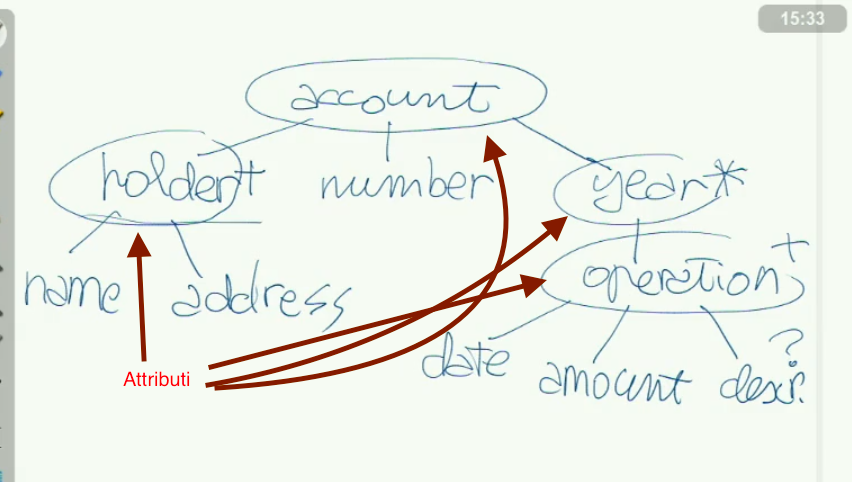 15:33
account
holder+
number
year*
name
address
operation+
date
amount
descr?
Attributi